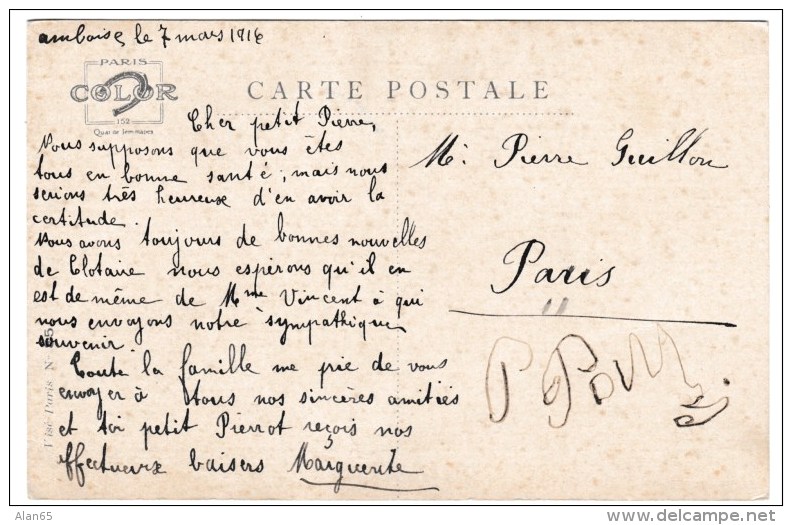 amboise le 7 mars 1916
PARIS
COLOR
152
Quai de Jemmapes
CARTE POSTALE
Cher petit Pierre,
Nous supposons que vous êtes
tous en bonne santé, mais nous
serions très heureux d'en avoir la
certitude.
Nous avons toujours de bonnes nouvelles
de Clotaire nous espérons qu'il en
est de même de Mme Vincent à qui
nous envoyons notre sympathique
souvenir
Toute la famille me prie de vous
envoyer à tous nos sincères amitiés
et toi petit Pierrot reçois nos
effectueux baisers Marguerite
Mr Pierre Guillon
Paris
Visé-Paris N°
Alan65
delcampe.net